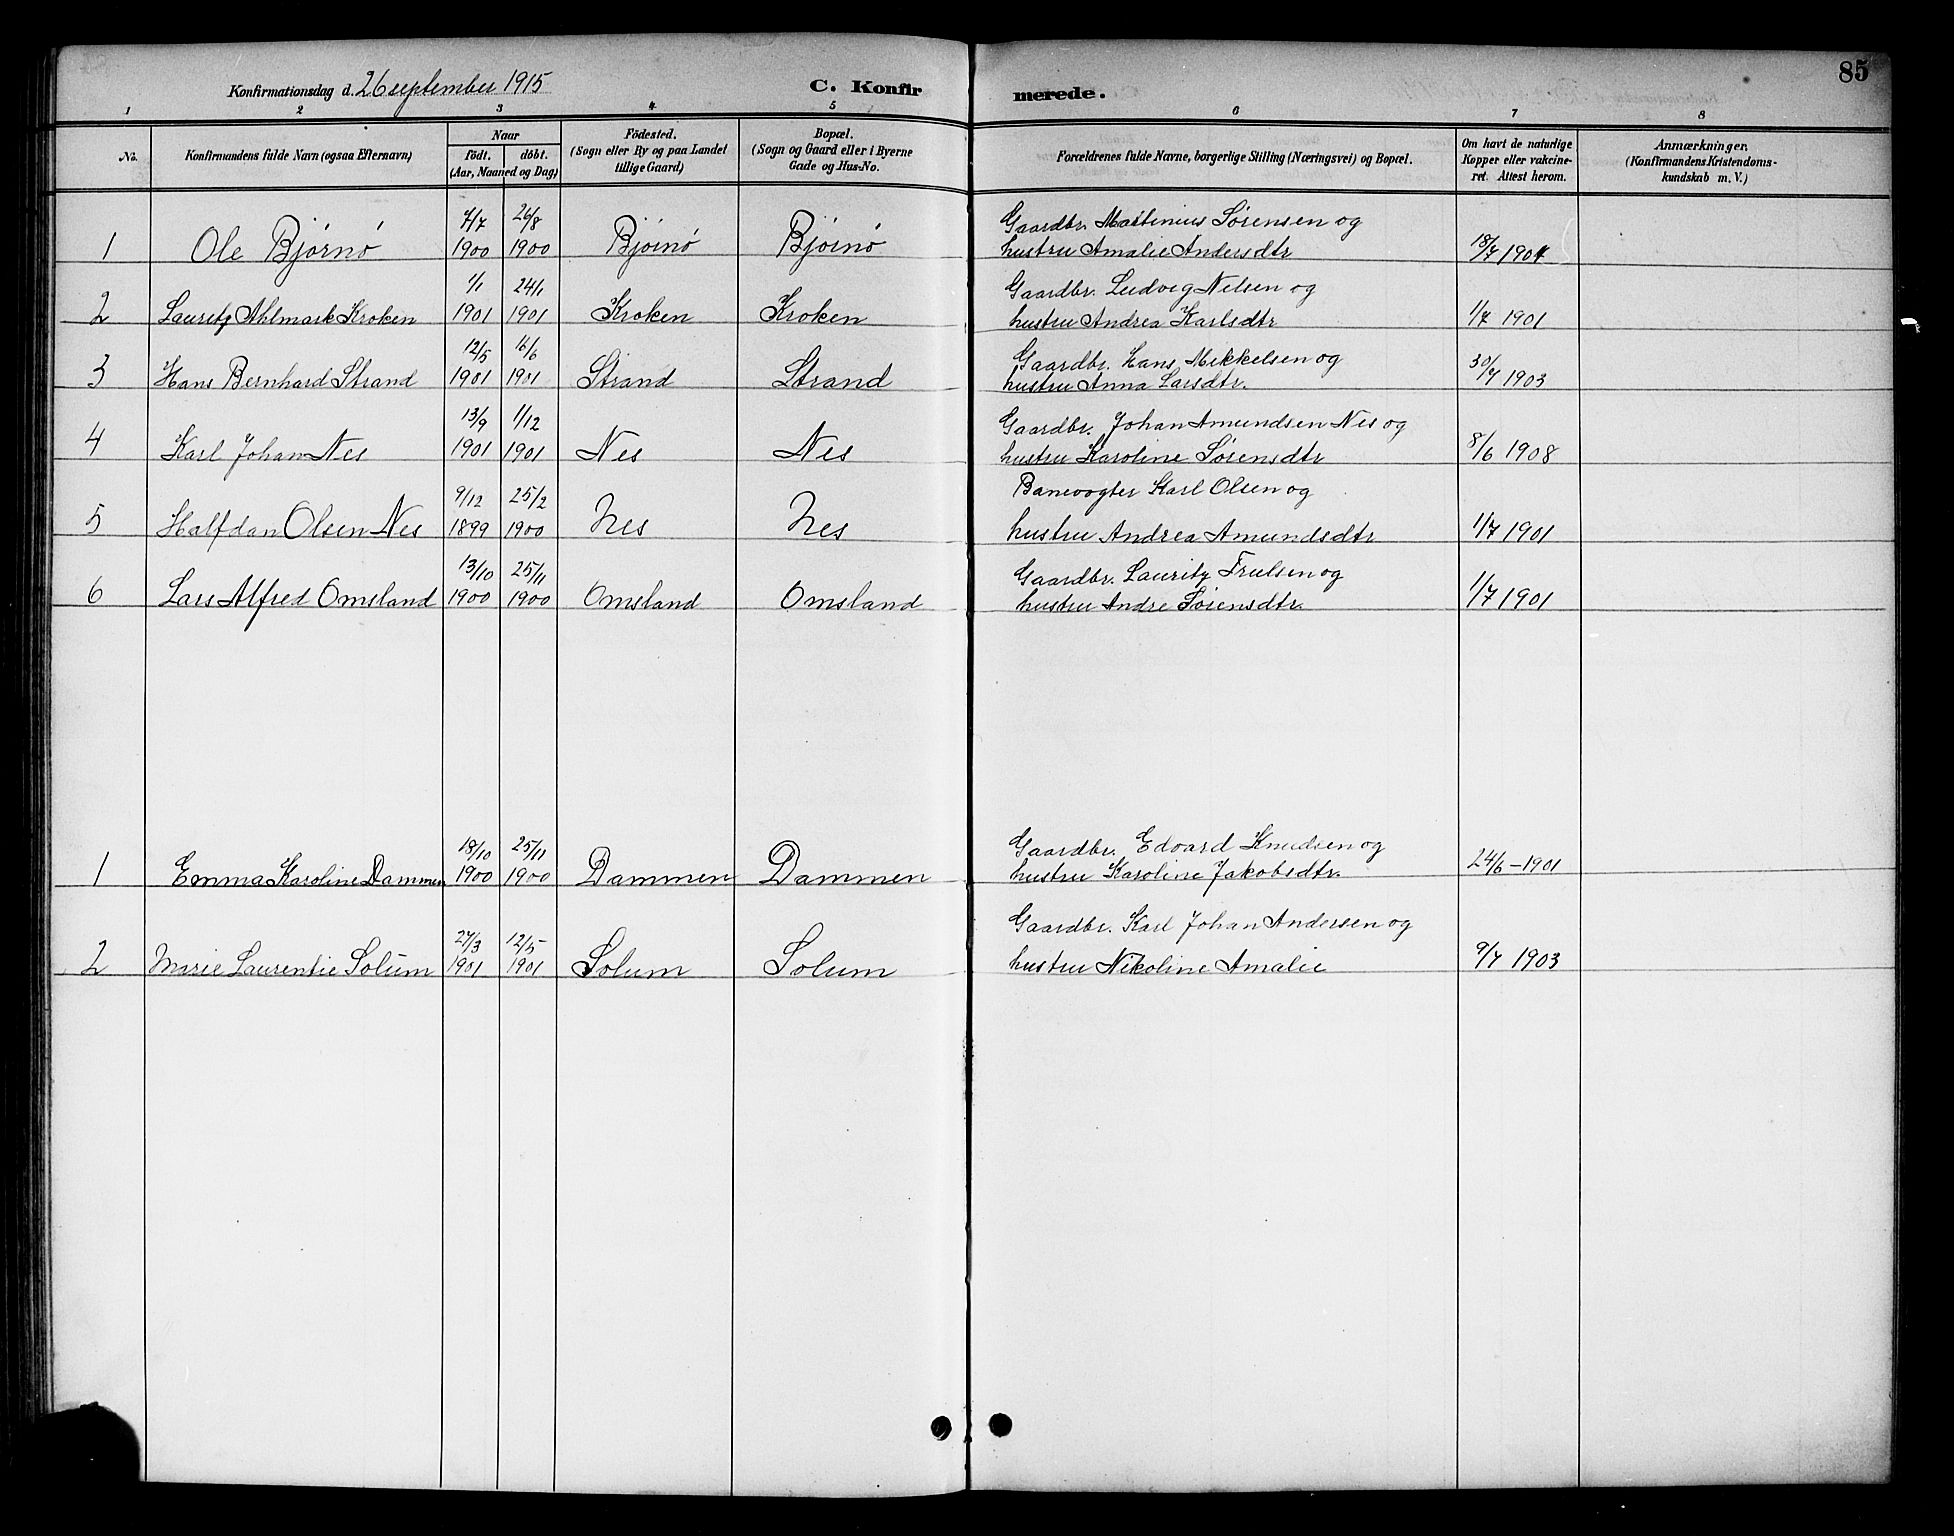 85
Konfirmationsdag d. 26 september 1915
C. Konfirmerede.
1 2 3 4 5 6 7 8
No.
Konfirmandens fulde Navn (ogsaa Efternavn)
Naar
födt. döbt.
(Aar, Maaned og Dag)
Födested.
(Sogn eller By og paa Landet
tillige Gaard)
Bopæl.
(Sogn og Gaard eller i Byerne
Gade og Hus-No.
Forældrenes fulde Navne, borgerlige Stilling (Næringsvei) og Bopæl.
Om havt de naturlige
Kopper eller vakcine-
ret. Attest herom.
Anmærkninger.
(Konfirmandens Kristendoms-
kundskab m. V.)
4/7 26/8 Gaardbr. Martinius Sørensen og
1 Ole Bjørnø 1900 1900 Bjørnø Bjørnø hustru Amalie Andersdtr 18/7 1901
1/1 24/1 Gaardbr. Ludvig Nelsen og
2 Lauritz Ahlmark Kroken 1901 1901 Kroken Kroken hustru Andrea Karlsdtr 1/7 1901
12/5 16/6 Gaardbr. Hans Mikkelsen og
3 Hans Bernhard Strand 1901 1901 Strand Strand hustru Anna Larsdtr. 30/7 1903
13/9 1/12 Gaardbr. Johan Amundsen Nes og
4 Karl Johan Nes 1901 1901 Nes Nes hustru Karoline Sørensdtr 8/6 1908
9/12 25/2 Banevogter Karl Olsen og
5 Halfdan Olsen Nes 1899 1900 Nes Nes hustru Andrea Amundsdtr 1/7 1901
13/10 25/11 Gaardbr. Lauritz Trulsen og
6 Lars Alfred Omsland 1900 1900 Omsland Omsland hustru Andre Sørensdtr. 1/7 1901
18/10 25/11 Gaardbr. Edvard Knudsen og
1 Emma Karoline Dammen 1900 1900 Dammen Dammen hustru Karoline Jakobsdtr. 24/6 - 1901
27/3 12/5 Gaardbr. Karl Johan Andersen og
2 Marie Laurentie Solum 1901 1901 Solum Solum hustru Nikoline Amalie 9/7 1903